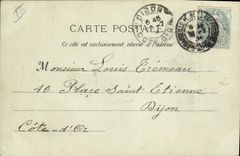 II
DIJON
6 45
CÔTE-D'OR
CARTE POSTALE
Ce côté est exclusivement réservé à l'adresse
Monsieur Louis Trémeau
10 Place Saint-Etienne
Dijon
Côte-d'Or